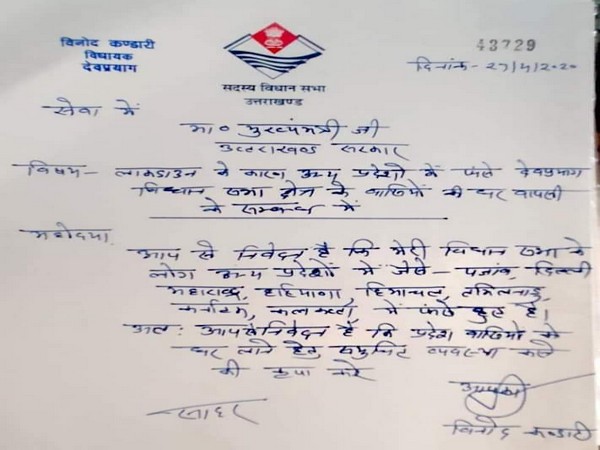 विनोद कण्डारी
विधायक
देवप्रयाग
सदस्य विधान सभा
उत्तराखण्ड
43729
दिनांक - 27/4/2020
सेवा में
मा० मुख्यमंत्री जी
उत्तराखण्ड सरकार
विषय- लाकडाउन के कारण अन्य प्रदेशों में फंसे देवप्रयाग
विधान सभा क्षेत्र के वासियों की घर वापसी
के सम्बन्ध में
महोदय,
आप से निवेदन है कि मेरी विधान सभा के
लोग अन्य प्रदेशों में जैसे - पंजाब, दिल्ली
महाराष्ट्र, हरियाणा, हिमाचल, तमिलनाडु,
कर्नाटक, कलकत्ता में फंसे हुए है।
अतः आपसे निवेदन है, कि प्रदेश वासियों को
घर लाने हेतु समुचित व्यवस्था करने
की कृपा करें
सादर
आपका
विनोद कण्डारी